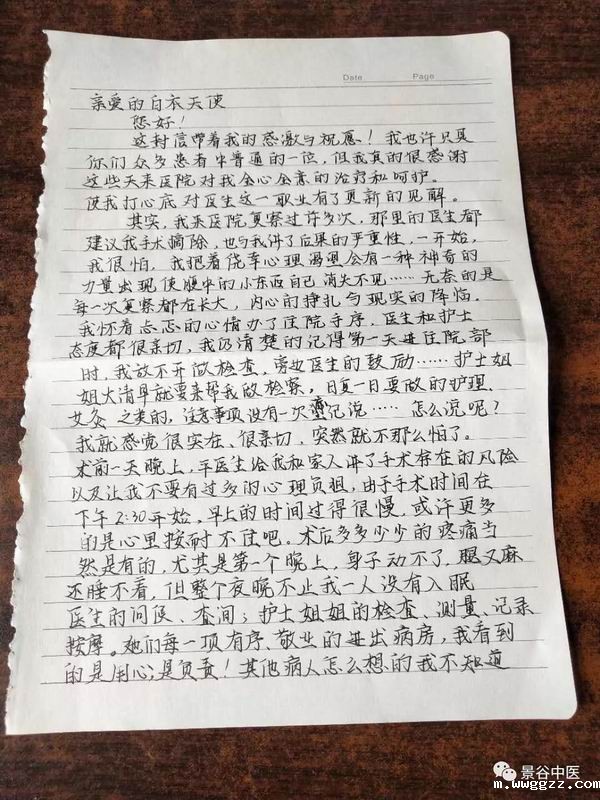 Date Page
亲爱的白衣天使
您好！
这封信带着我的感激与祝愿！我也许只是
你们众多患者中普通的一位，但我真的很感谢
这些天来医院对我全心全意的治疗和呵护。
使我打心底对医生这一职业有了更新的见解。
其实，我来医院复察过许多次，那里的医生都
建议我手术摘除，也与我讲了后果的严重性，一开始，
我很怕，我抱着侥幸心理渴望会有一种神奇的
力量出现使腹中的小东西自己消失不见……无奈的是
每一次复察都在长大，内心的挣扎与现实的降临。
我怀着忐忑的心情办了住院手序，医生和护士
态度都很亲切，我仍清楚的记得第一天进住院部
时，我放不开做检查、旁边医生的鼓励……护士姐
姐大清早就要来帮我做检察，日复一日要做的护理、
艾灸之类的，注意事项没有一次忘记说……怎么说呢？
我就感觉很实在、很亲切，突然就不那么怕了。
术前一天晚上，平医生给我和家人讲了手术存在的风险
以及让我不要有过多的心理负担，由于手术时间在
下午2:30开始，早上的时间过得很慢，或许更多
的是心里按耐不住吧。术后多多少少的疼痛当
然是有的，尤其是第一个晚上，身子动不了，腿又麻
还睡不着，但整个夜晚不止我一人没有入眠
医生的问候、查间；护士姐姐的检查、测量、记录
按摩。她们每一项有序、敬业的进出病房，我看到
的是用心；是负责！其他病人怎么想的我不知道
景谷中医
m.wwggzz.com